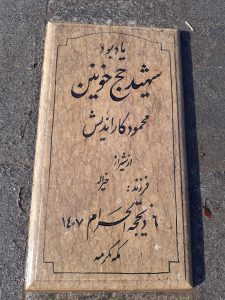 یادبود
شهید حج خونین
محمود کاراندیش
از شیراز
فرزند: خیراله
۶ ذیحجه الحرام ۱۴۰۷
مکه مکرمه